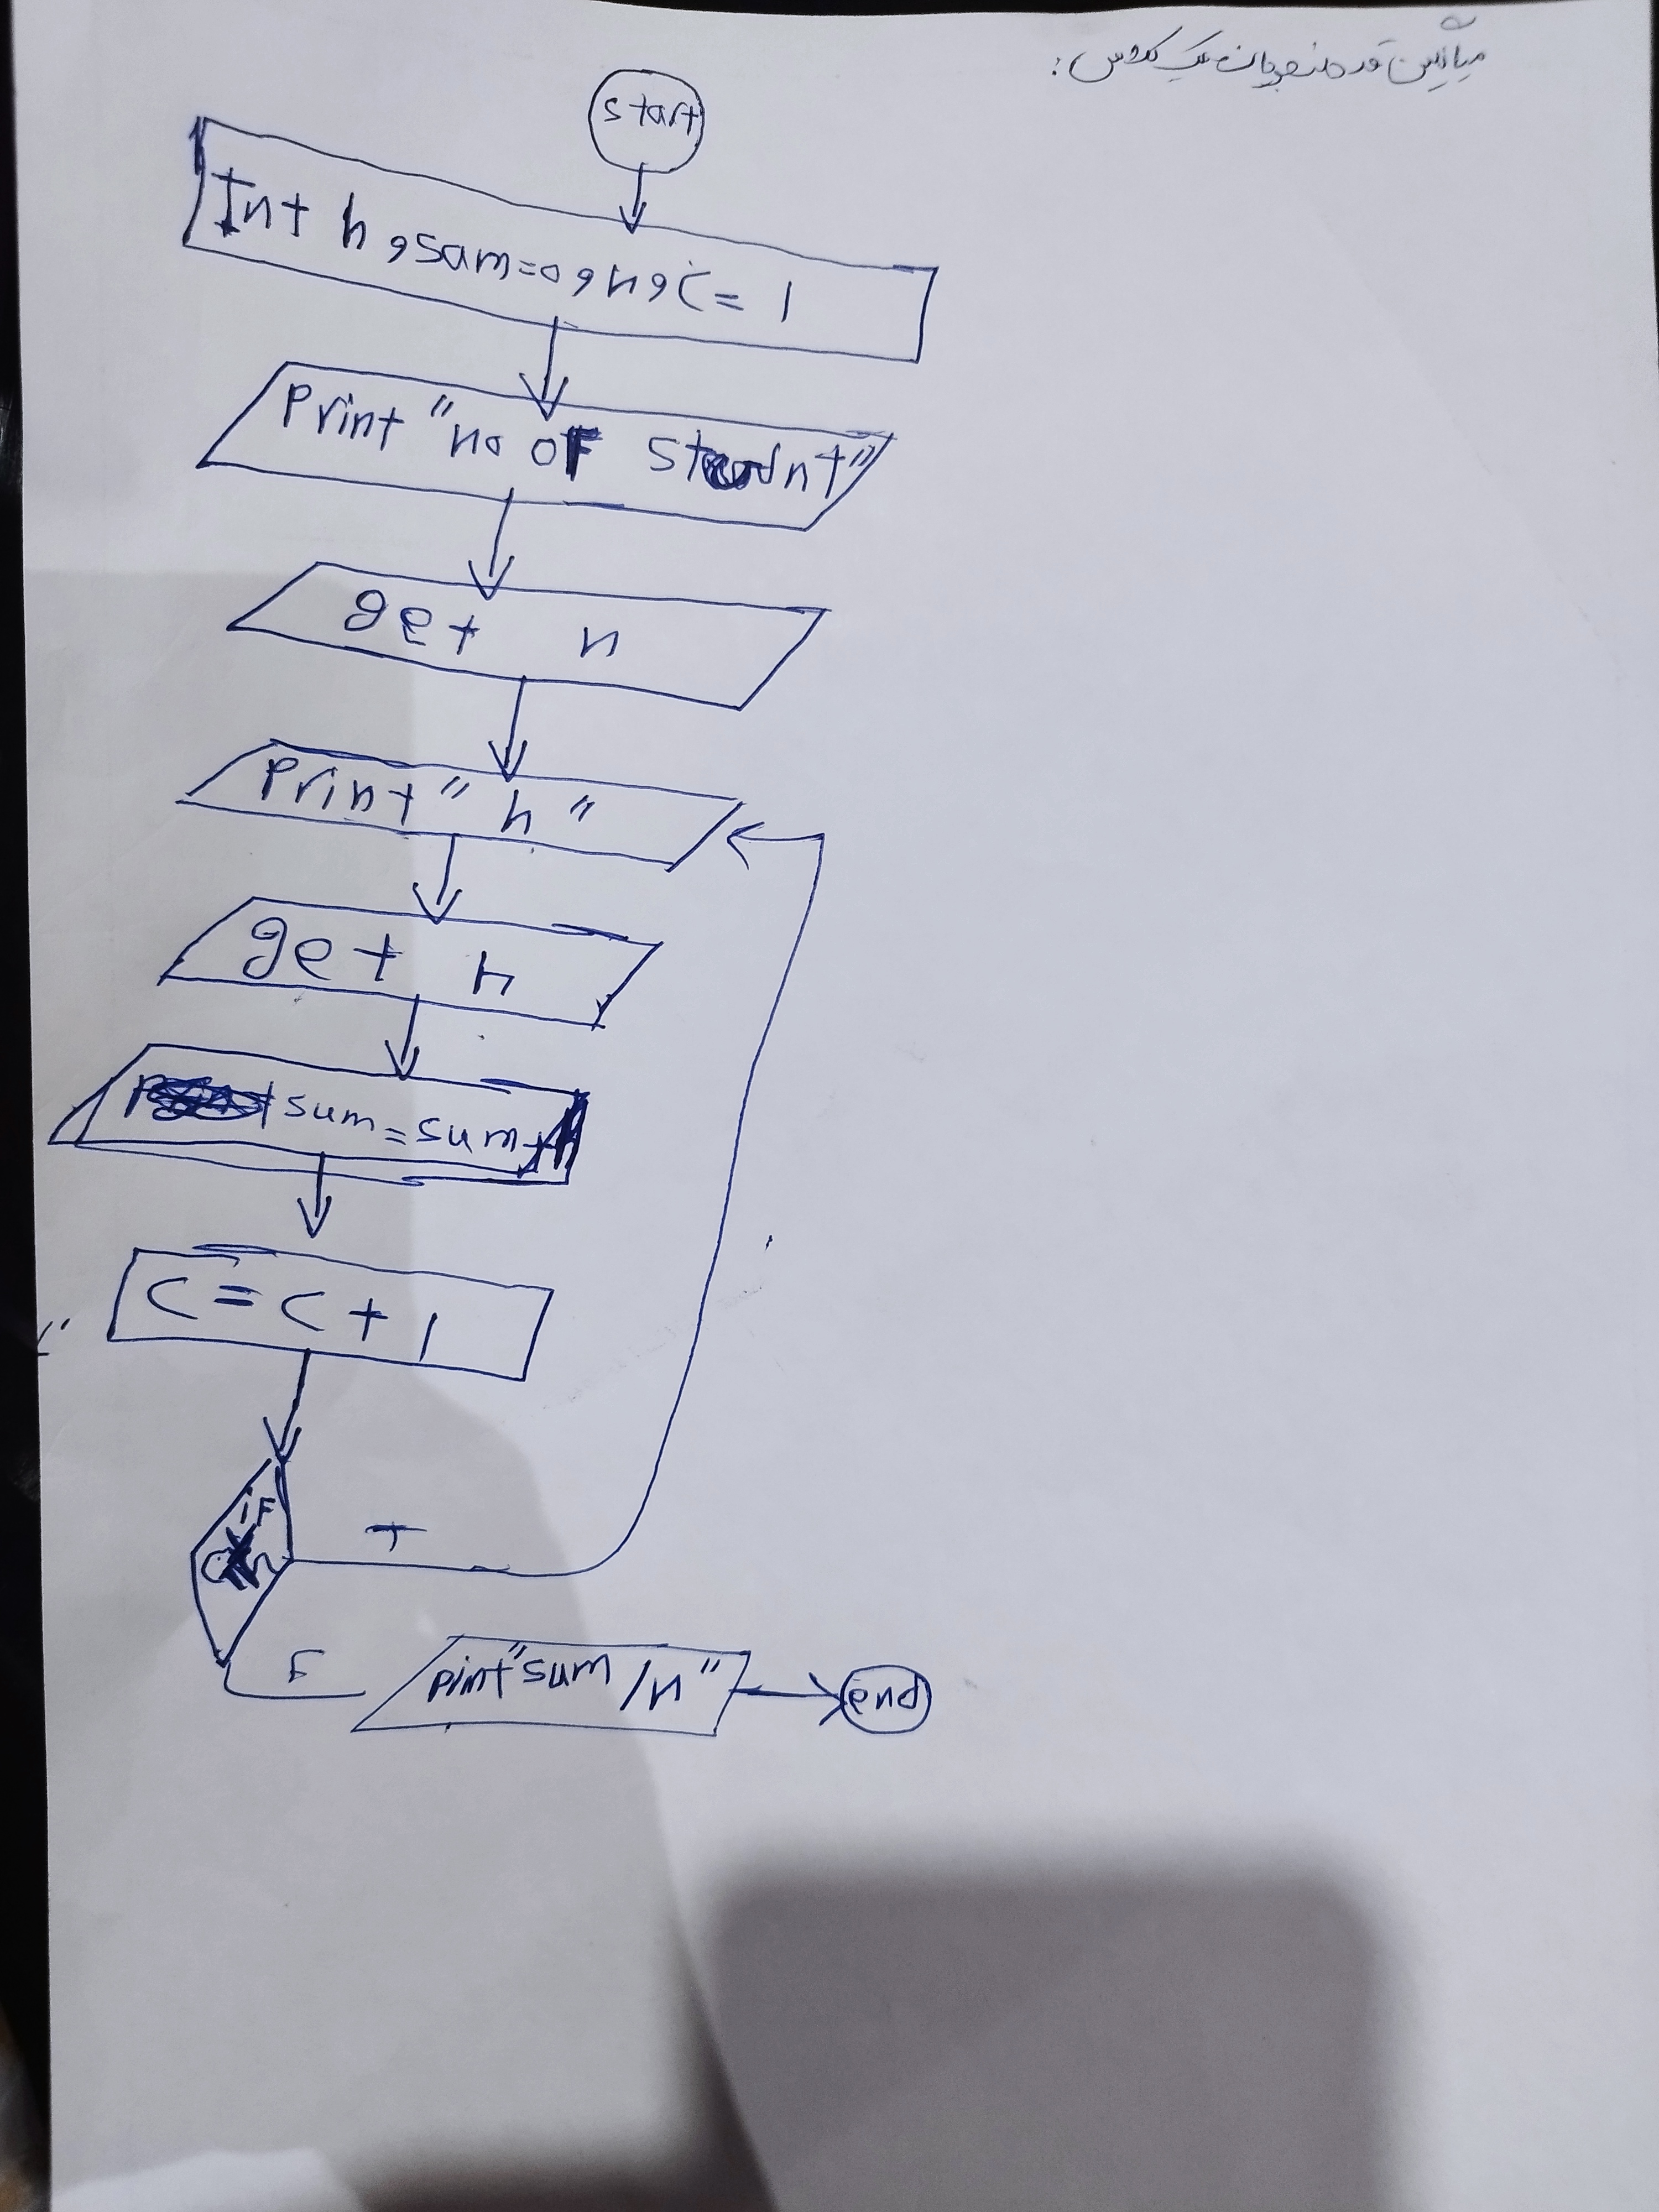 میانگین قد دانشجویان یک کلاس:
start
Int h, sam=0, n, C= 1
Print "no oF Studnt"
get n
Print "h"
get h
sum=sum+h
C=C+1
iF
T
F
pint "sum/n"
end